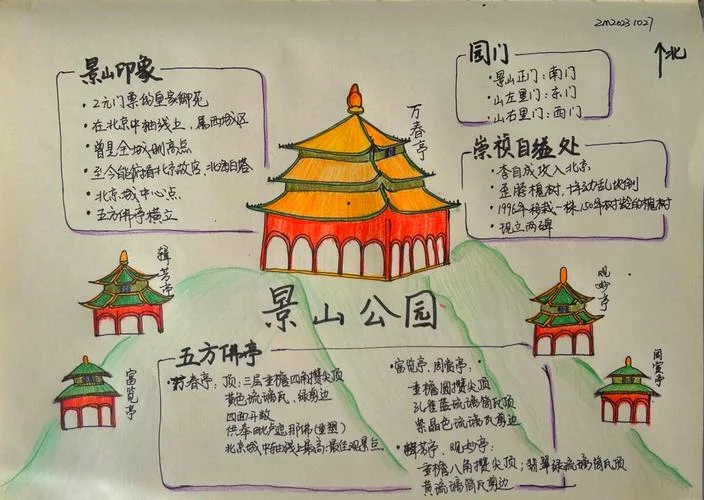 ZM20231027
北
景山印象
• 2元门票的皇家御苑
• 在北京中轴线上，属西城区
• 曾是全城制高点
• 至今能俯看北京故宫、北海白塔
• 北京城中心点
• 五方佛亭横立
园门
• 景山正门：南门
• 山左里门：东门
• 山右里门：西门
万春亭
崇祯自缢处
• 李自成攻入北京
• 歪脖槐树，十年动乱, 伐倒
• 1996年移栽一株150年树龄的槐树
• 现立两碑
辑芳亭
观妙亭
景山公园
富览亭
周赏亭
五方佛亭
• 万春亭：顶：三层重檐四角攒尖顶
黄色琉璃瓦，绿剪边
四面开敞
供奉毗卢遮那佛（重塑）
北京城中轴线上最高·最佳观景点
• 富览亭，周赏亭：
重檐圆攒尖顶
孔雀蓝琉璃筒瓦顶
紫晶色琉璃瓦剪边
• 辑芳亭，观妙亭：
重檐八角攒尖顶；翡翠绿琉璃筒瓦顶
黄琉璃筒瓦剪边